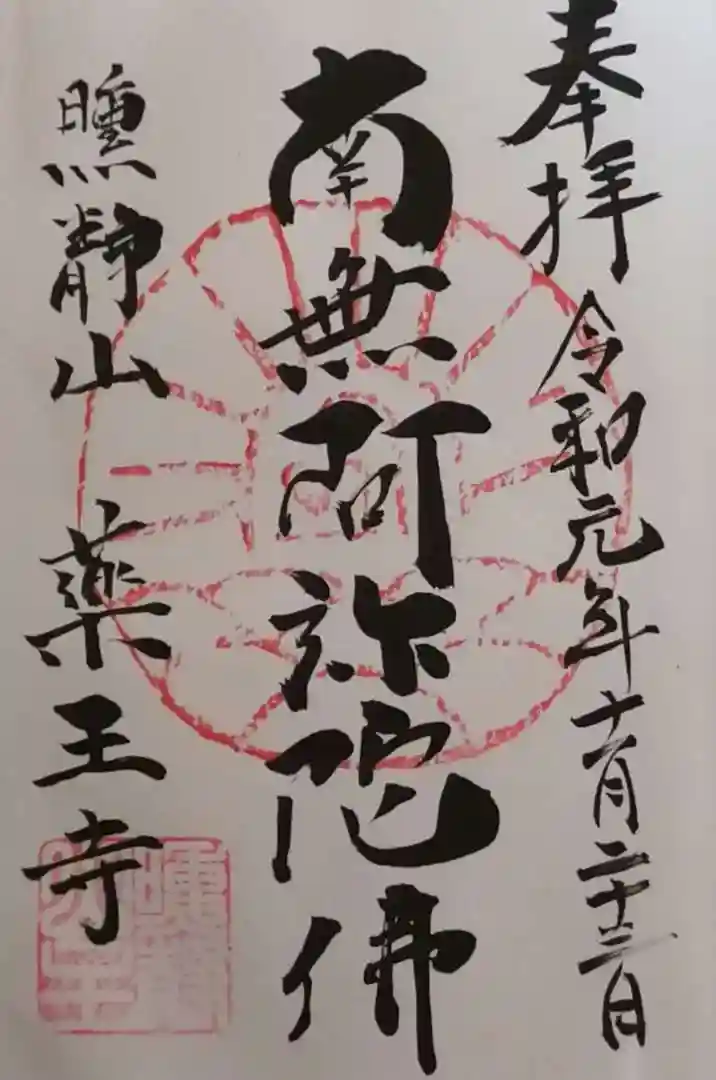 奉拝 令和元年十一月二十三日
南無阿弥陀佛
曛静山 薬王寺